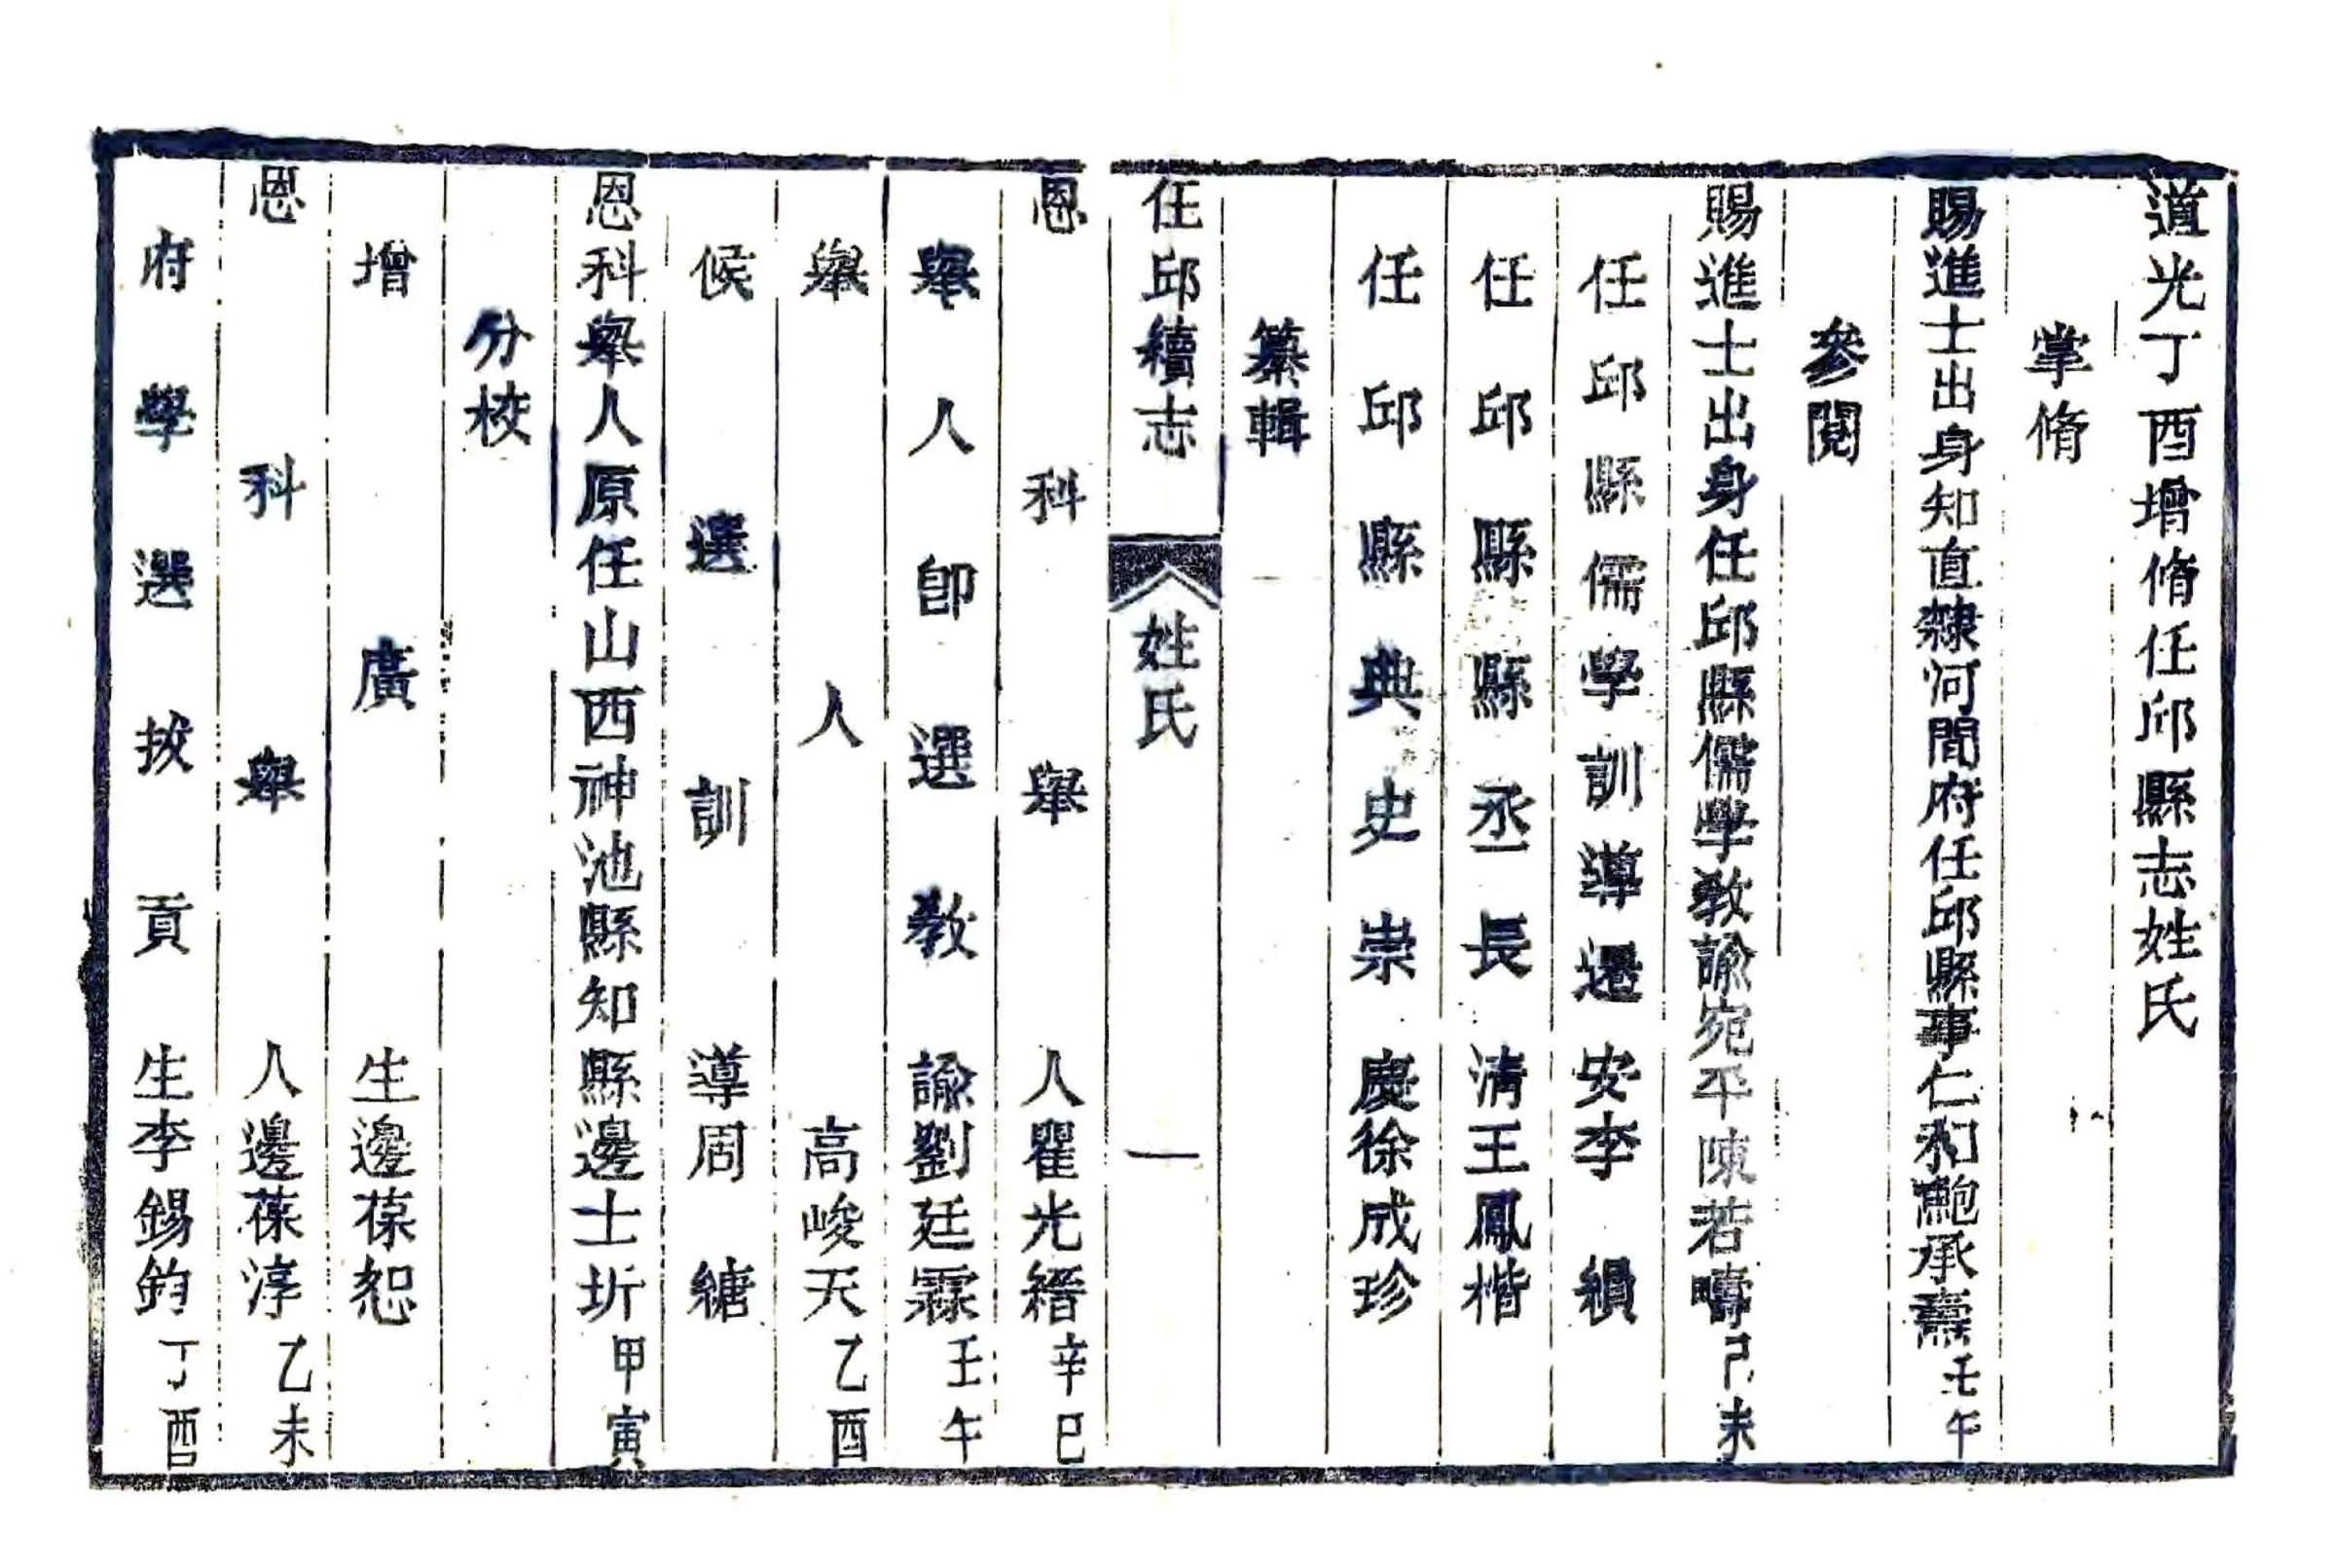 道光丁酉增脩任邱縣志姓氏
掌脩
賜進士出身知直隸河間府任邱縣事仁和鮑承燾壬午
參閱
賜進士出身任邱縣儒學教諭宛平陳若疇己未
任邱縣儒學訓導遷安李縜
任邱縣縣丞長清王鳳楷
任邱縣典史崇慶徐成珍
纂輯
任邱續志 姓氏 一
恩科舉人瞿光縉辛巳
舉人卽選教諭劉廷霖壬午
舉人高峻天乙酉
候選訓導周繡
恩科舉人原任山西神池縣知縣邊士圻甲寅
分校
增廣生邊葆恕
恩科舉人邊葆淳乙未
府學選拔貢生李錫鈞丁酉